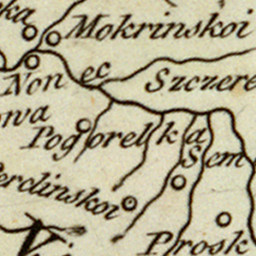 ka
Mokrinskoi
Non ec
Szczere
owa
Pogorelka
Sem
erdinskoi
Ki
Prosk